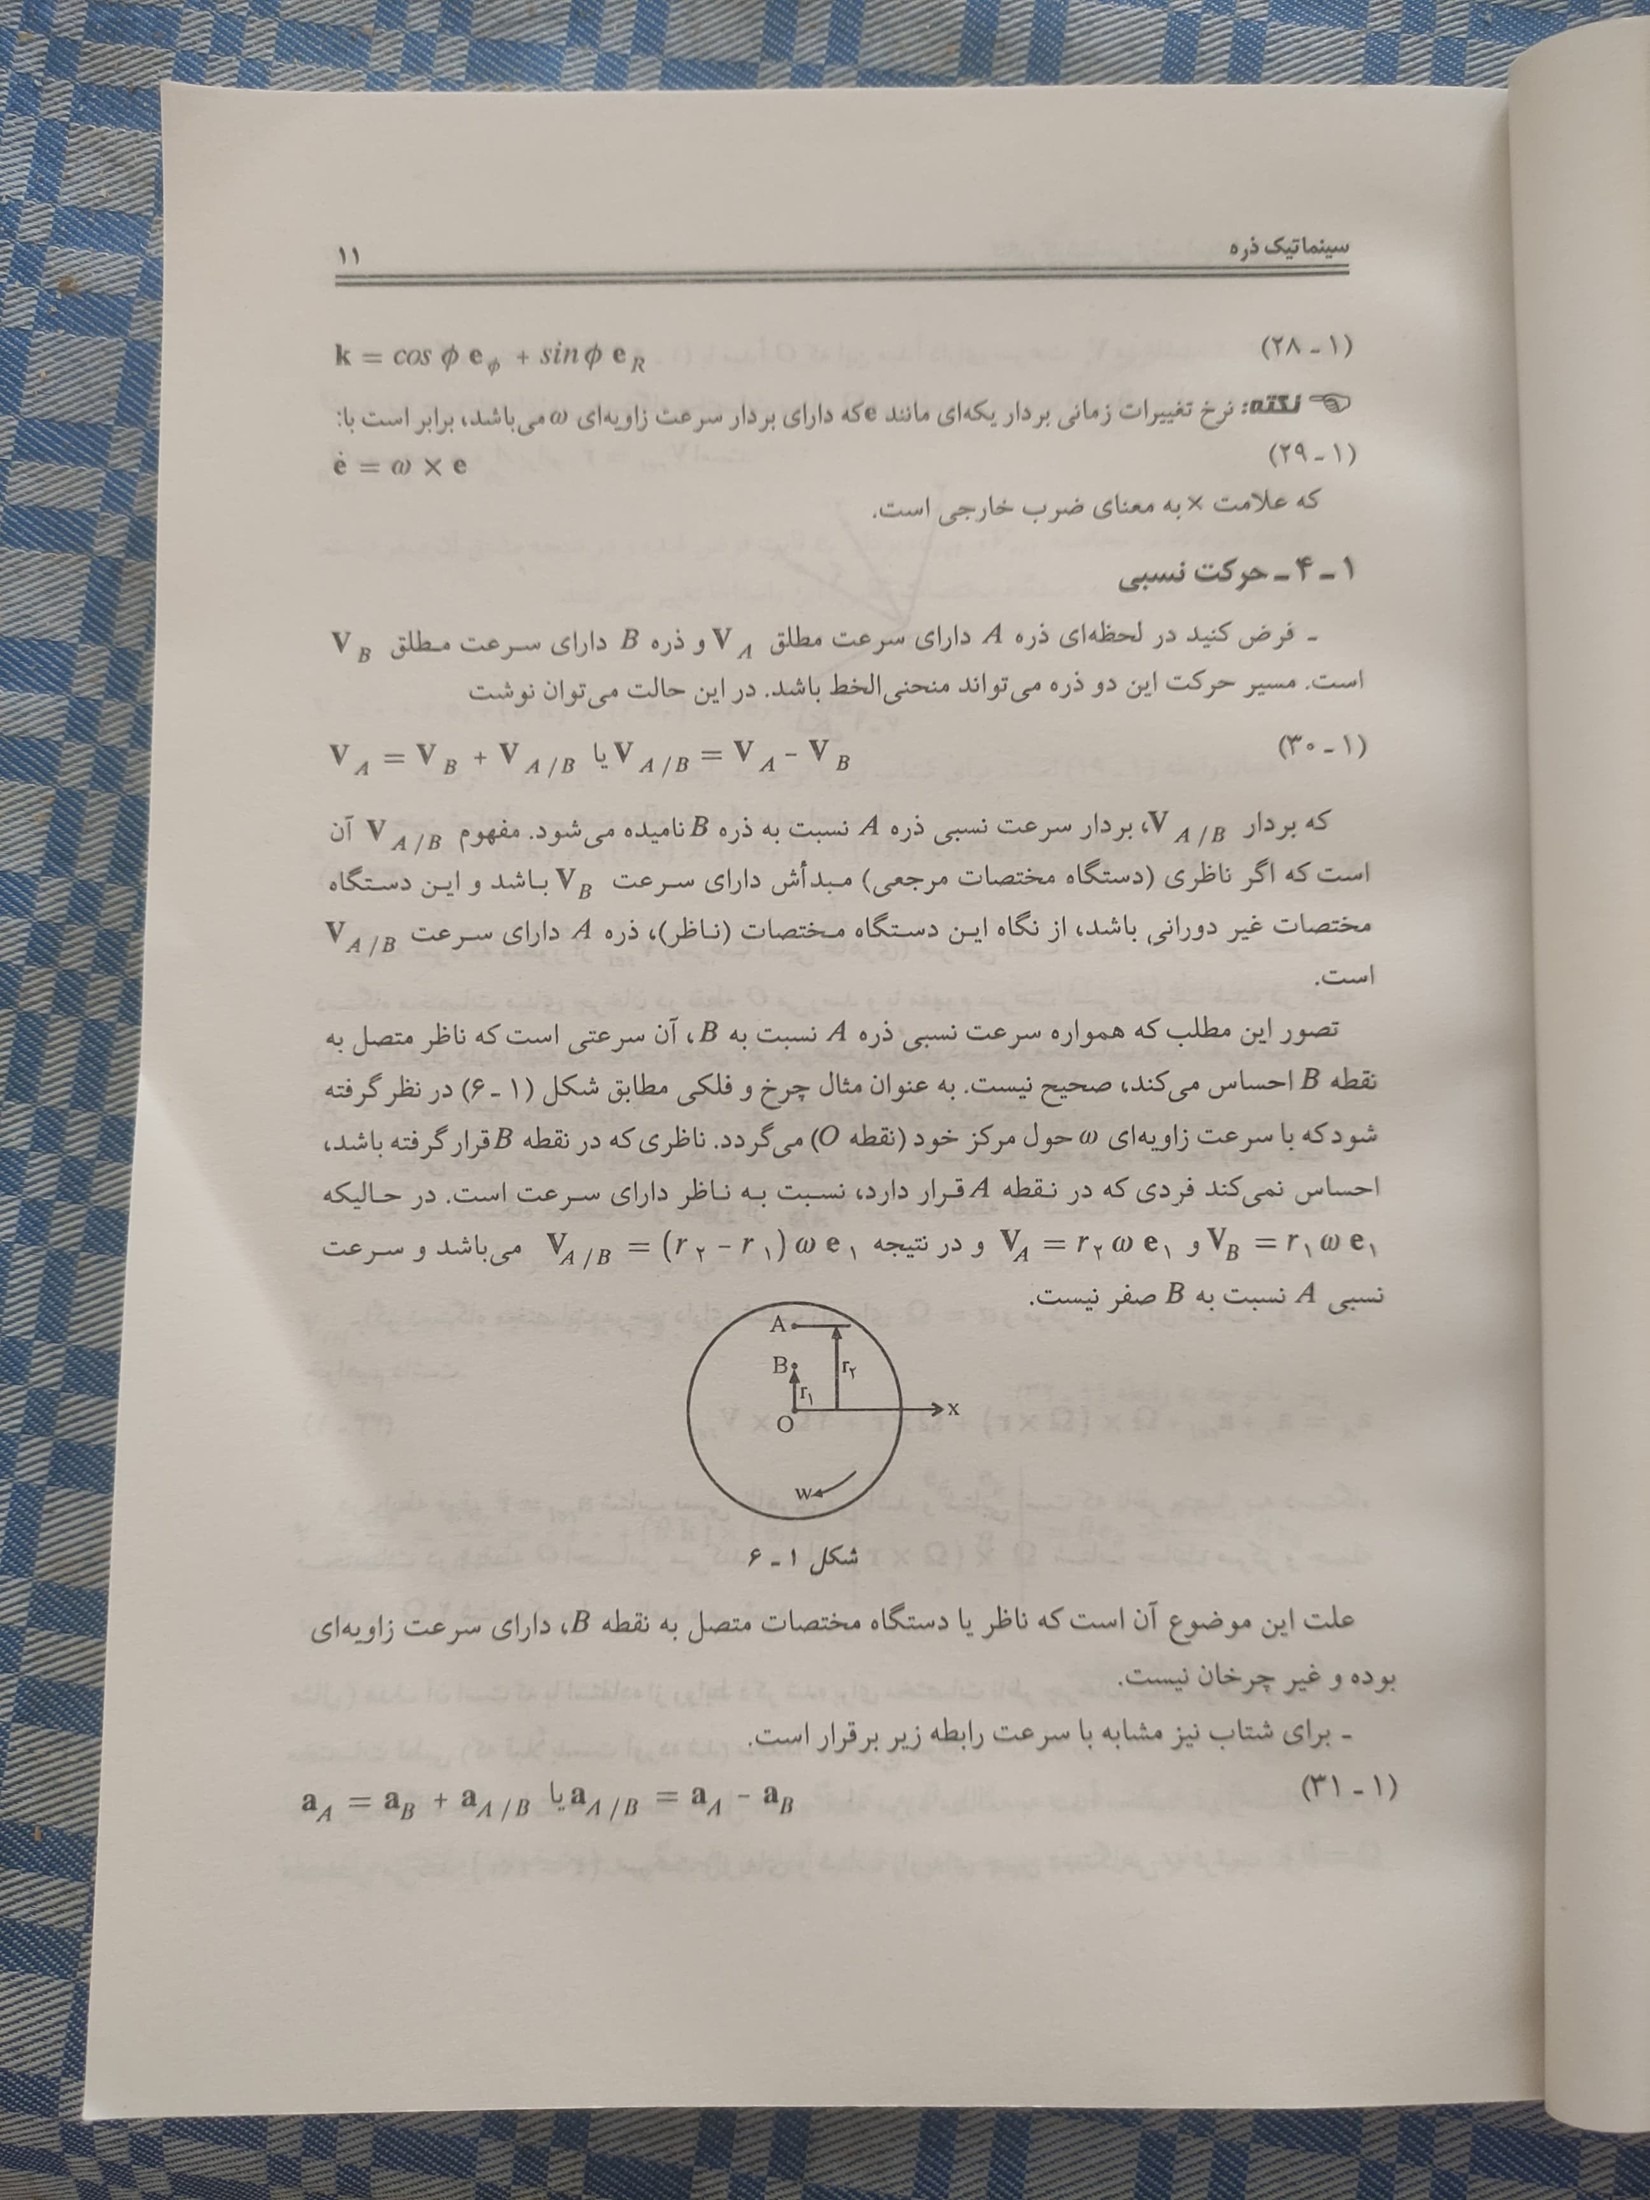 سینماتیک ذره ۱۱
k = cos ϕ e_ϕ + sin ϕ e_R (۱ - ۲۸)
نکته: نرخ تغییرات زمانی بردار یکه‌ای مانند e که دارای بردار سرعت زاویه‌ای ω می‌باشد، برابر است با:
ė = ω × e (۱ - ۲۹)
که علامت × به معنای ضرب خارجی است.
۱ ـ ۴ ـ حرکت نسبی
ـ فرض کنید در لحظه‌ای ذره A دارای سرعت مطلق V_A و ذره B دارای سرعت مطلق V_B
است. مسیر حرکت این دو ذره می‌تواند منحنی‌الخط باشد. در این حالت می‌توان نوشت
V_A = V_B + V_A/B یا V_A/B = V_A - V_B (۱ - ۳۰)
که بردار V_A/B، بردار سرعت نسبی ذره A نسبت به ذره B نامیده می‌شود. مفهوم V_A/B آن
است که اگر ناظری (دستگاه مختصات مرجعی) مبدأش دارای سرعت V_B باشد و این دستگاه
مختصات غیر دورانی باشد، از نگاه این دستگاه مختصات (ناظر)، ذره A دارای سرعت V_A/B
است.
تصور این مطلب که همواره سرعت نسبی ذره A نسبت به B، آن سرعتی است که ناظر متصل به
نقطه B احساس می‌کند، صحیح نیست. به عنوان مثال چرخ و فلکی مطابق شکل (۱ ـ ۶) در نظر گرفته
شود که با سرعت زاویه‌ای ω حول مرکز خود (نقطه O) می‌گردد. ناظری که در نقطه B قرار گرفته باشد،
احساس نمی‌کند فردی که در نقطه A قرار دارد، نسبت به ناظر دارای سرعت است. در حالیکه
V_B = r_۱ ω e_۱ و V_A = r_۲ ω e_۱ و در نتیجه V_A/B = (r_۲ - r_۱) ω e_۱ می‌باشد و سرعت
نسبی A نسبت به B صفر نیست.
A
B
r_۲
r_۱
O
x
w
شکل ۱ ـ ۶
علت این موضوع آن است که ناظر یا دستگاه مختصات متصل به نقطه B، دارای سرعت زاویه‌ای
بوده و غیر چرخان نیست.
ـ برای شتاب نیز مشابه با سرعت رابطه زیر برقرار است.
a_A = a_B + a_A/B یا a_A/B = a_A - a_B (۱ - ۳۱)